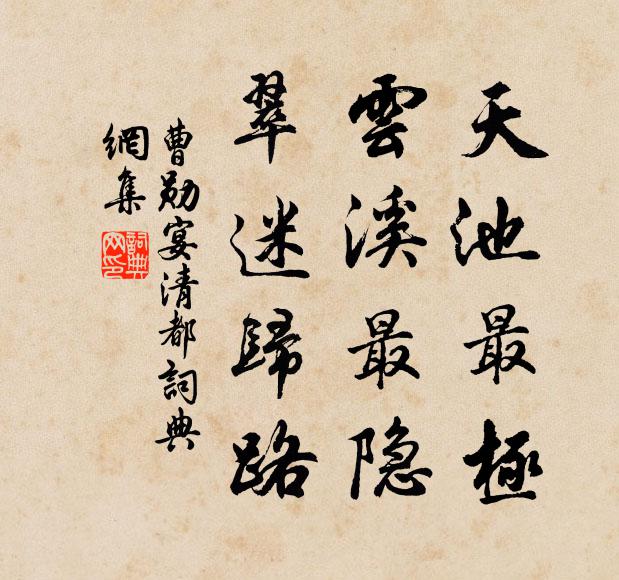 天池最極
雲溪最隐
翠迷歸路
曹勛宴清都詞典
網集
詞典
网印